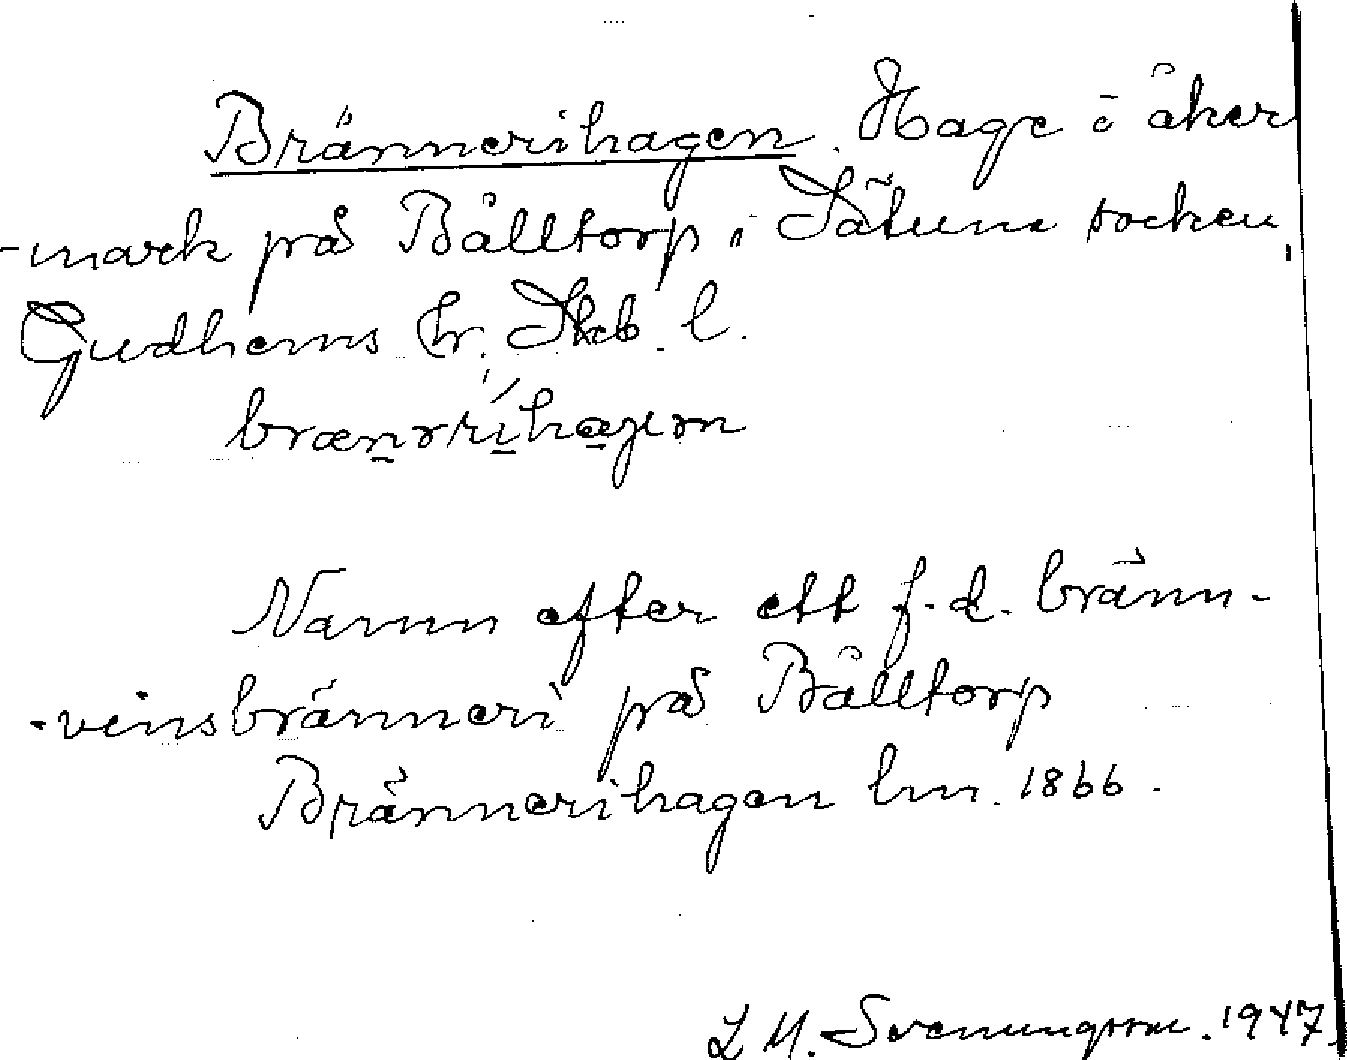 Brännerihagen. Hage i åker
-mark på Bålltorp i Sätuna socken,
Gudhems hr. Skb. l.
Namn efter ett f.d. bränn-
-vinsbränneri på Bålltorp
Brännerihagen lm. 1866.
L M. Svenungsson. 1947